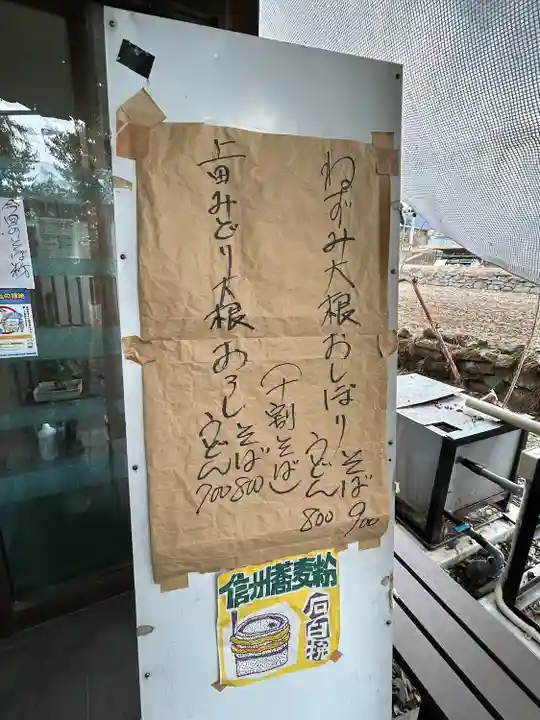 ねずみ大根おしぼりそば 900
うどん 800
(十割そば)
上田みどり大根おろしそば 800
うどん 700
信州蕎麦粉
石臼挽
今回のそば粉